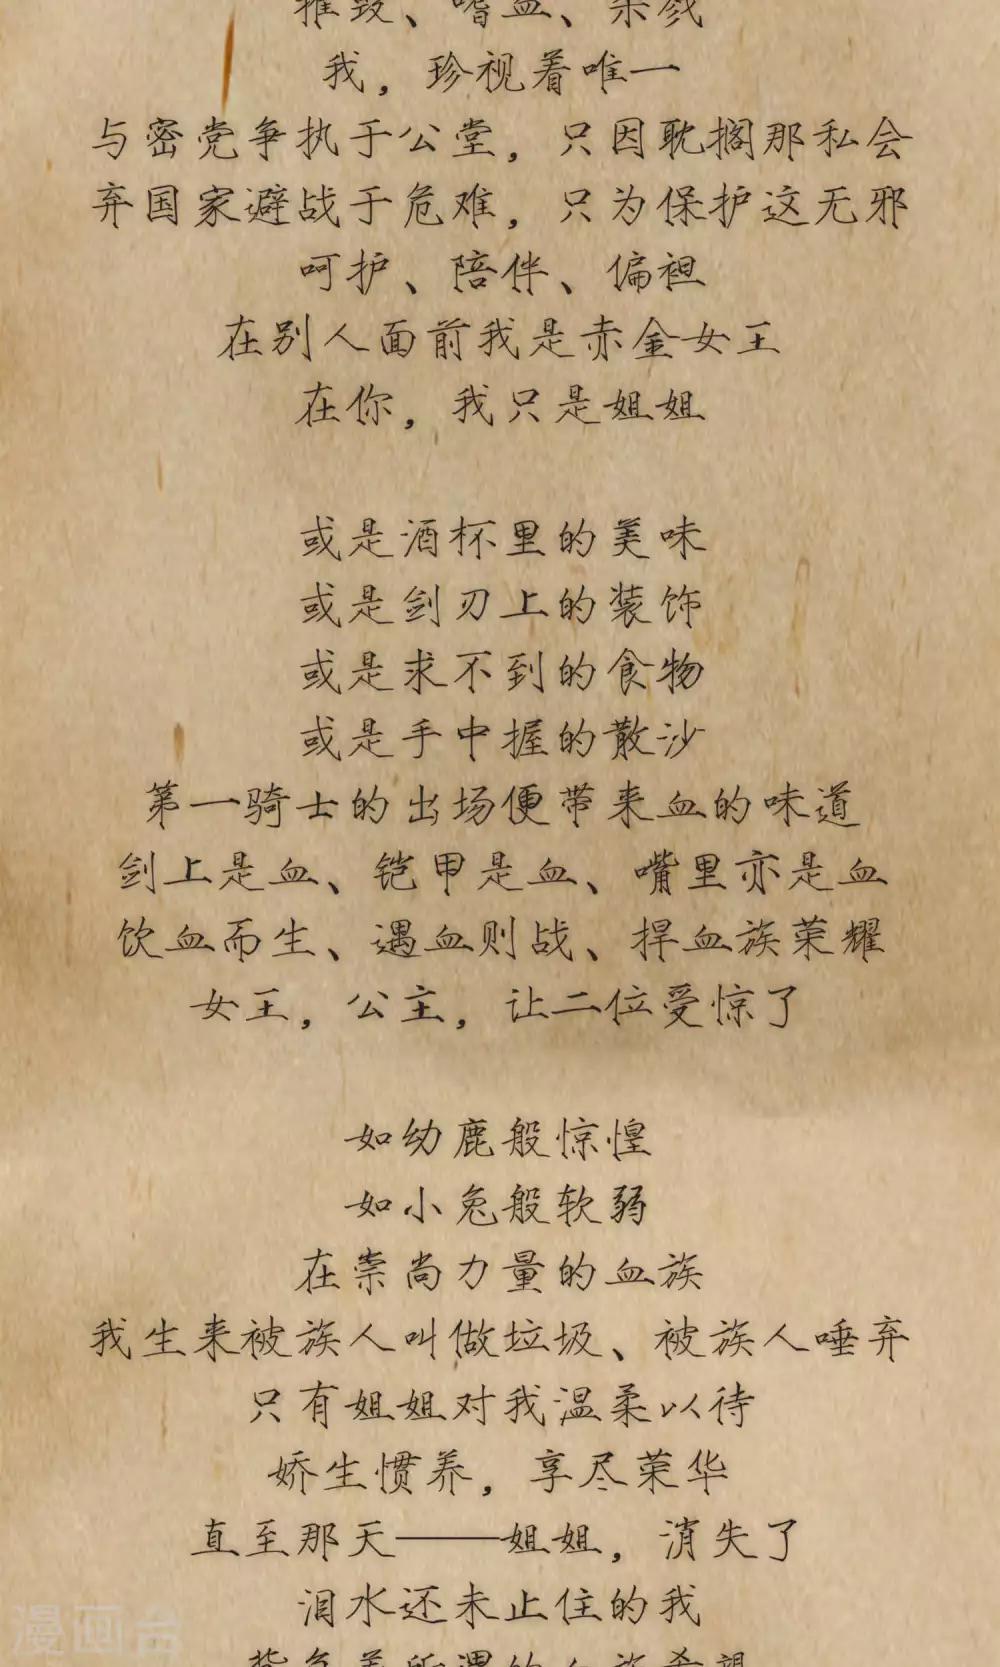 摧毁、嗜血、杀戮
我，珍视着唯一
与密党争执于公堂，只因耽搁那私会
弃国家避战于危难，只为保护这无邪
呵护、陪伴、偏袒
在别人面前我是赤金女王
在你，我只是姐姐
或是酒杯里的美味
或是剑刃上的装饰
或是求不到的食物
或是手中握的散沙
第一骑士的出场便带来血的味道
剑上是血、铠甲是血、嘴里亦是血
饮血而生、遇血则战、捍血族荣耀
女王，公主，让二位受惊了
如幼鹿般惊惶
如小兔般软弱
在崇尚力量的血族
我生来被族人叫做垃圾、被族人唾弃
只有姐姐对我温柔以待
娇生惯养，享尽荣华
直至那天——姐姐，消失了
泪水还未止住的我
漫画台